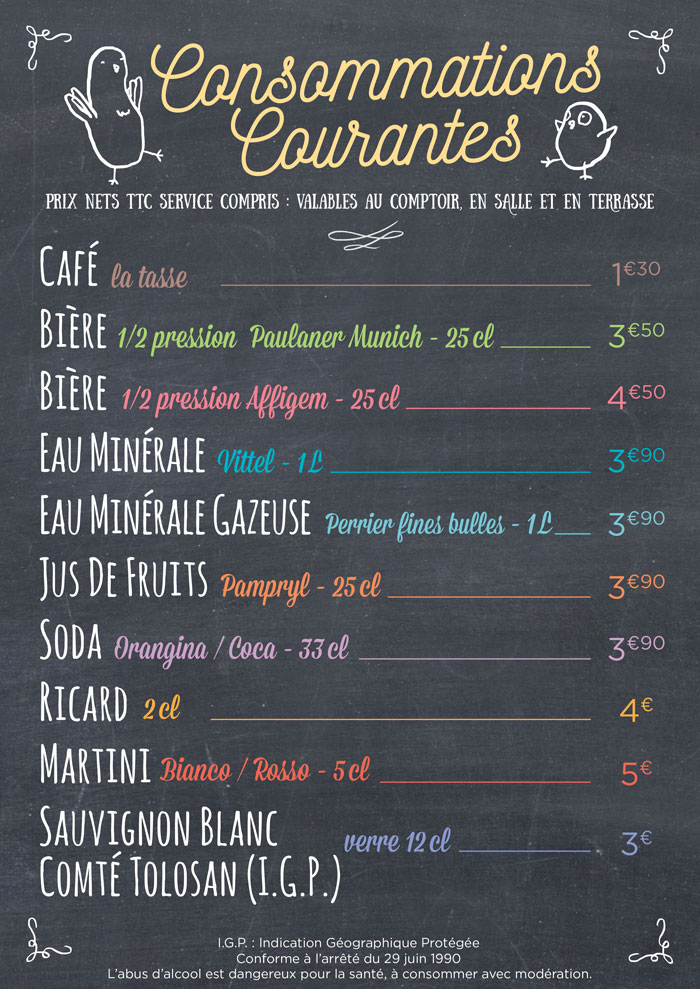 Consommations
Courantes
PRIX NETS TTC SERVICE COMPRIS : VALABLES AU COMPTOIR, EN SALLE ET EN TERRASSE
CAFÉ la tasse 1€30
BIÈRE 1/2 pression Paulaner Munich - 25 cl 3€50
BIÈRE 1/2 pression Affigem - 25 cl 4€50
EAU MINÉRALE Vittel - 1 L 3€90
EAU MINÉRALE GAZEUSE Perrier fines bulles - 1 L 3€90
JUS DE FRUITS Pampryl - 25 cl 3€90
SODA Orangina / Coca - 33 cl 3€90
RICARD 2 cl 4€
MARTINI Bianco / Rosso - 5 cl 5€
SAUVIGNON BLANC verre 12 cl 3€
COMTÉ TOLOSAN (I.G.P.)
I.G.P. : Indication Géographique Protégée
Conforme à l'arrêté du 29 juin 1990
L'abus d'alcool est dangereux pour la santé, à consommer avec modération.